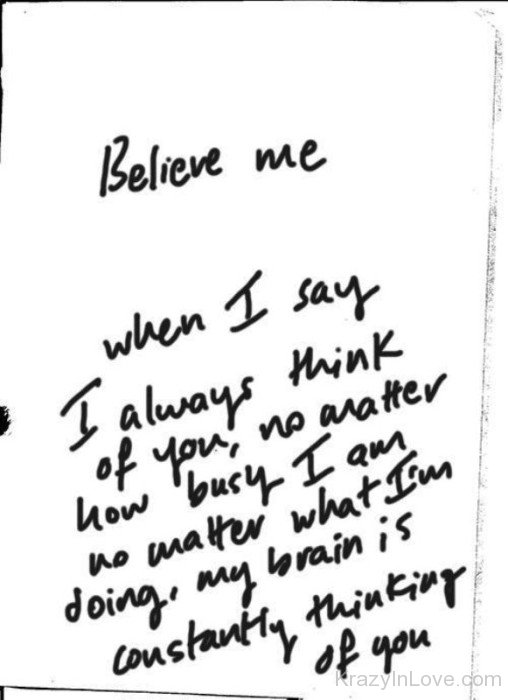 Believe me
when I say
I always think
of you, no matter
how busy I am
no matter what I'm
doing, my brain is
constantly thinking
of you
KrazyInLove.com